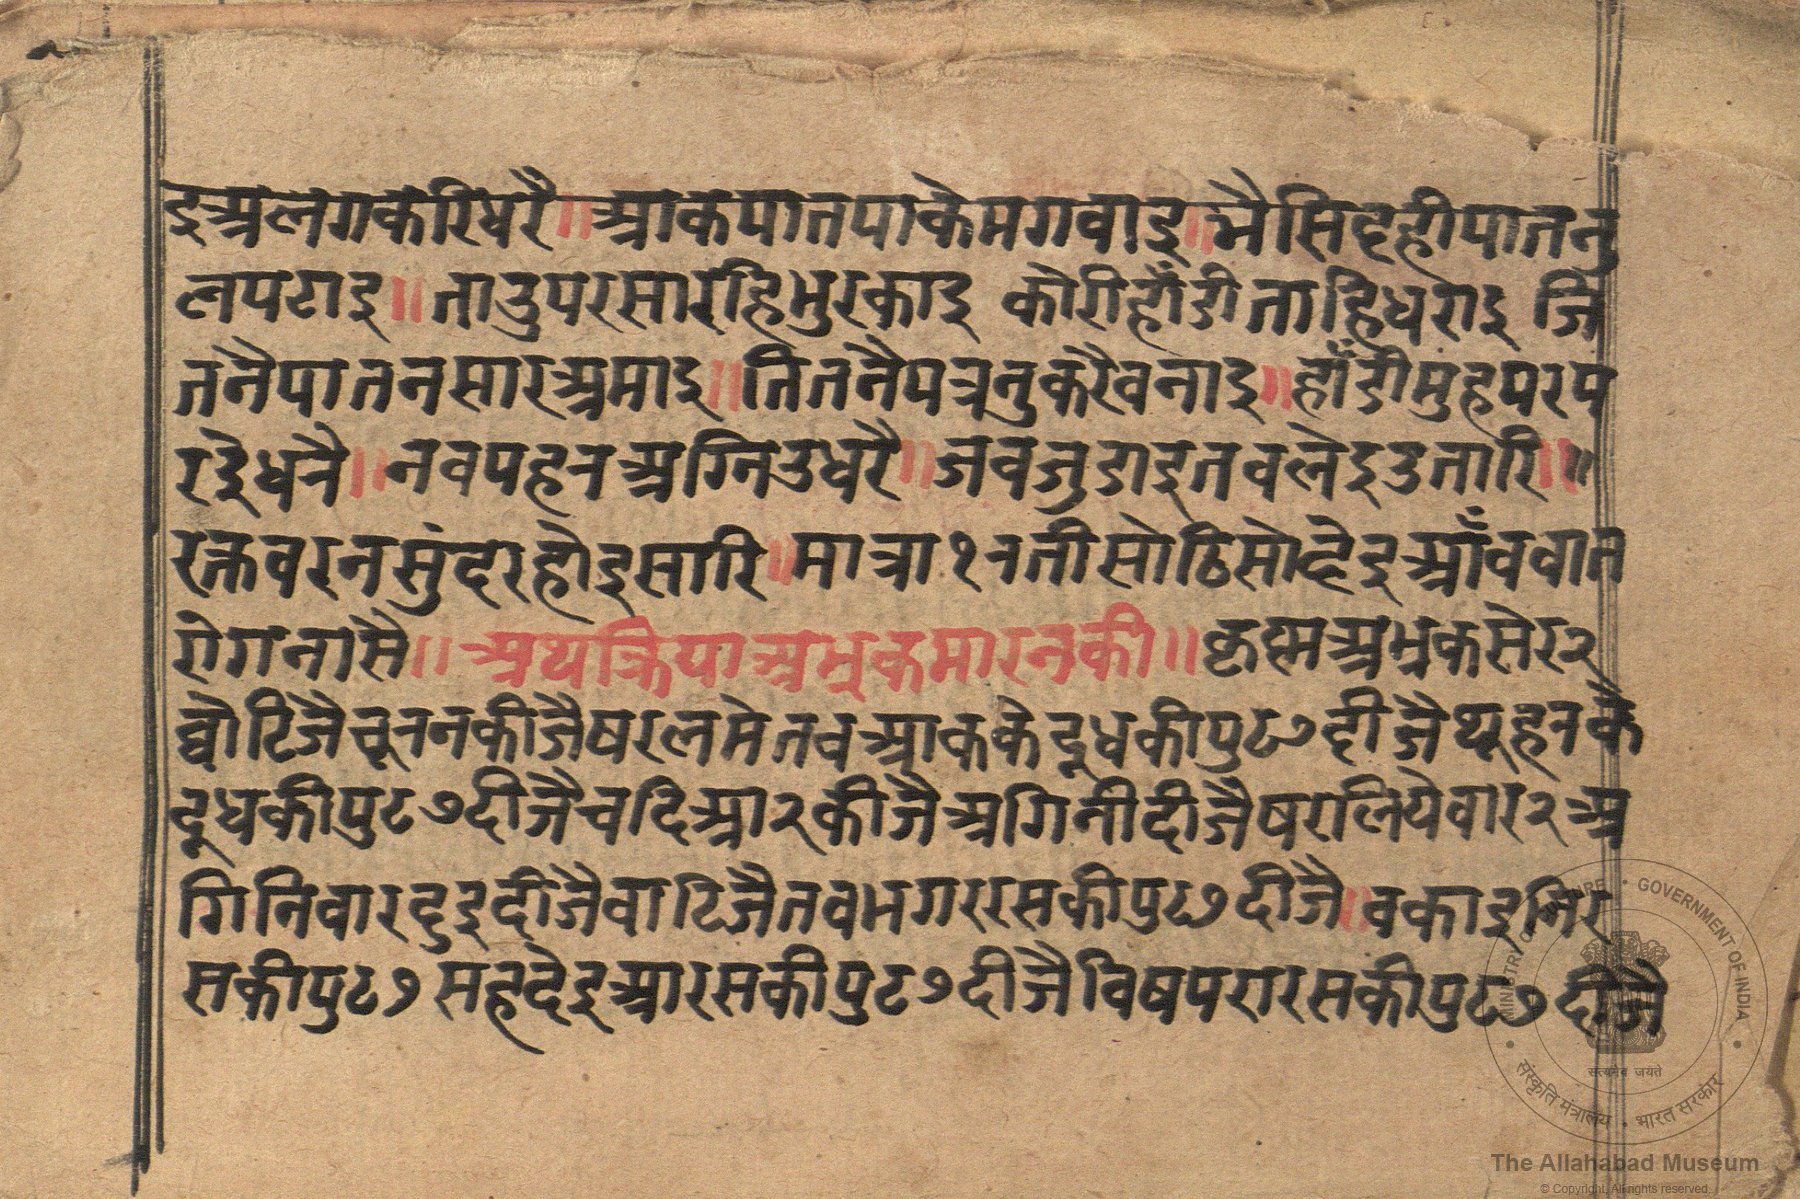 इअलगकरिधरै॥आकपातपाकेमगवाइ॥भैसिदहीपातनु
लपटाइ॥ताउपरसारहिभुरकाइ कोरीहाँडीताहिधराइ जि
तनैपातनसारअमाइ॥तितनैपत्रनुकरैवनाइ॥हाँडीमुहपरप
रईधनै॥नवपहनअग्निउधरै॥जवजुडाइतवलेइउतारि॥
रक्तवरनसुंदरहोइसारि॥मात्रा१नतीसोठिसोदेइआँववात
रोगनासै॥अथक्रियाअभ्रकमारनकी॥कृष्मअभ्रकसेर२
षोटिजैचूननकीजैषरलमेतवआककेदूधकीपुट७दीजैथूहनकै
दूधकीपुट७दीजैचदिआ२कीजैअगिनीदीजैषरालियेवार२अ
गिनिवारदुइदीजैवाटिजैतवभगररसकीपुट७दीजै॥वकाइनिर
सकीपुट७ सहदेइआरसकीपुट७दीजैविषपरारसकीपुट७दीजै
MINISTRY OF CULTURE • GOVERNMENT OF INDIA
सत्यमेव जयते
संस्कृति मंत्रालय • भारत सरकार
The Allahabad Museum
© Copyright, All rights reserved.